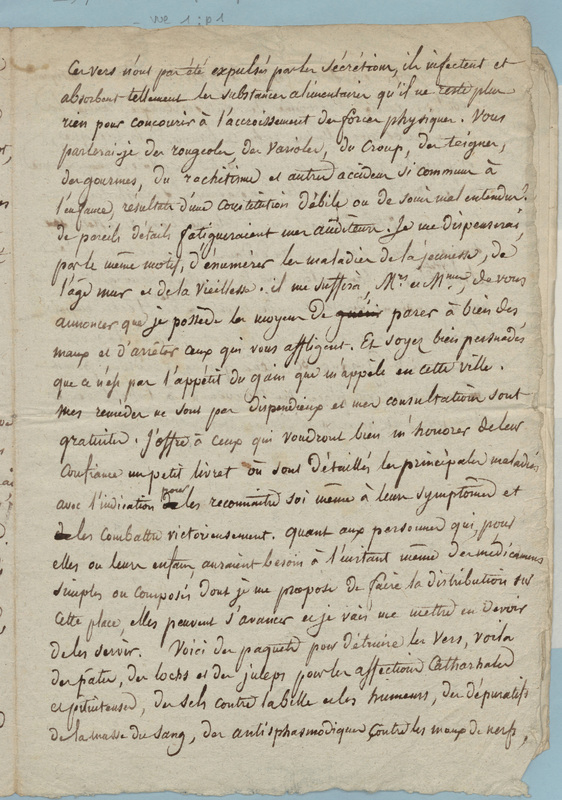 vue 1 : p 1
Ces vers n'ont pas été expulsés par les sécrétions, ils infectent et
absorbent tellement les substances alimentaires qu'il ne reste plus
rien pour concourir à l'accroissement des forces physiques. Vous
parlerai-je des rougeoles, des varioles, du Croup, des teignes,
des gourmes, du rachétisme et autres accidens si communs à
l'enfance, résultats d'une Constitution débile ou de soins mal entendus?
de pareils détails fatigueraient mes auditeurs. Je me dispenserai
par le même motif, d'énumérer les maladies de la jeunesse, de
l'âge mur et de la vieillesse. il me suffira, Mrs et Mmes, de vous
annoncer que je possède les moyens de guérir parer à bien des
maux et d'arrêter ceux qui vous affligent. Et soyez bien persuadés
que ce n'est pas l'appétit du gain qui m'appèle en cette ville.
mes remèdes ne sont pas dispendieux et mes consultations sont
gratuites. J'offre à ceux qui voudront bien m'honorer de leur
Confiance un petit livret où sont détaillés les principales maladies
avec l'indication pour les reconnaitre soi même à leurs symptômes et
de les Combattre victorieusement. quant aux personnes qui, pour
elles ou leurs enfans, auraient besoin à l'instant même des médicamens
simples ou composés dont je me propose de faire la distribution sur
Cette place, elles peuvent s'avancer et je vais me mettre en devoir
de les servir. Voici des paquets pour détruire les vers, voila
des pâtes, des lochs et des juleps pour les affections Catharhales
et pituiteuses, des sels contre la bile et les humeurs, des dépuratifs
de la masse du sang, des antisphasmodiques contre les maux de nerfs,